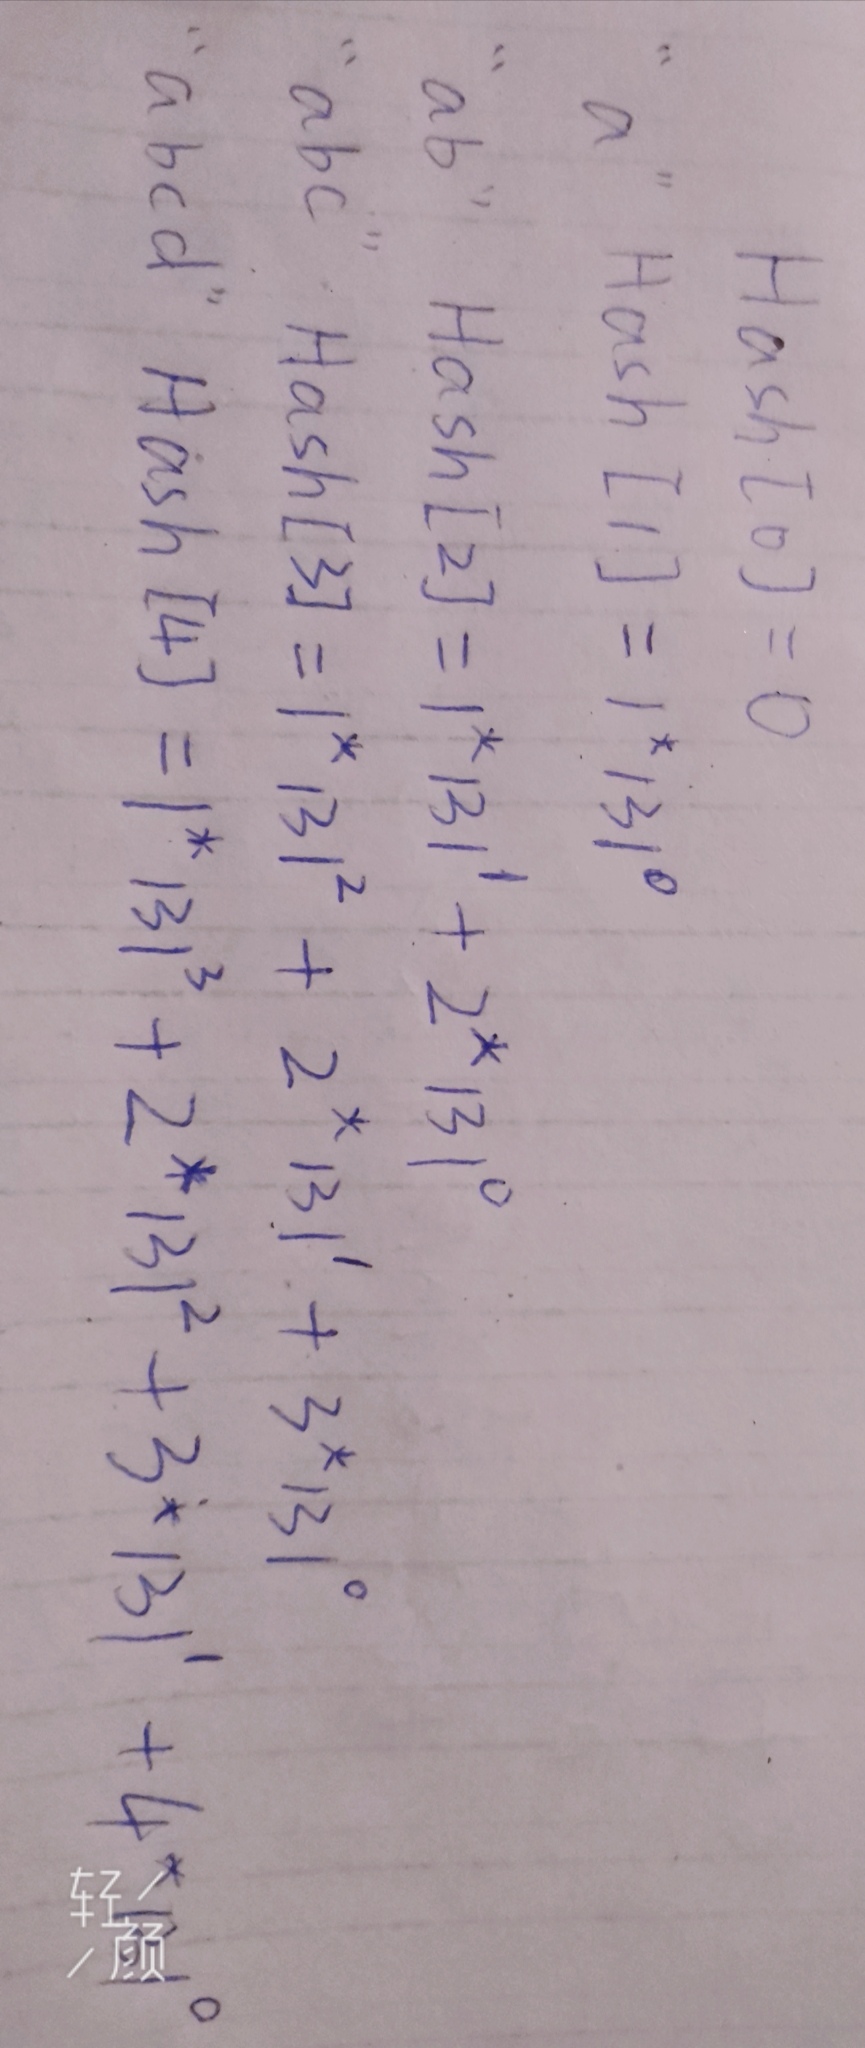 Hash[0] = 0
"a" Hash[1] = 1*131⁰
"ab" Hash[2] = 1*131¹ + 2*131⁰
"abc" Hash[3] = 1*131² + 2*131¹ + 3*131⁰
"abcd" Hash[4] = 1*131³ + 2*131² + 3*131¹ + 4*131⁰
轻颜